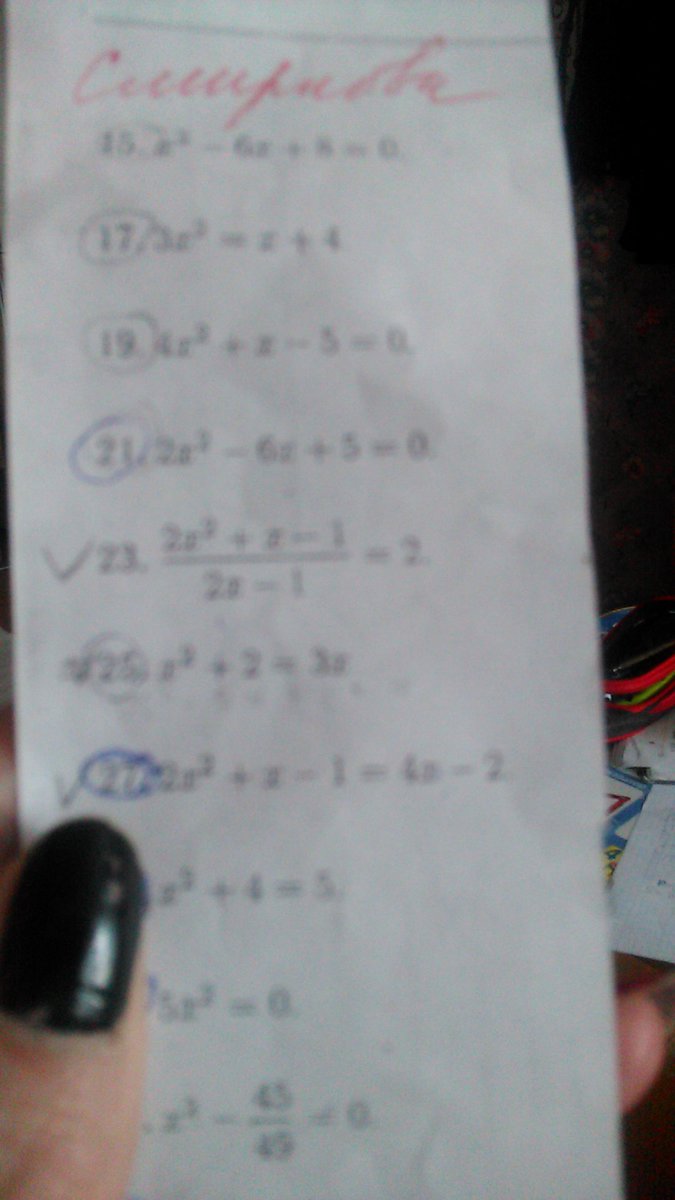 Смирнова
15. x² − 6x + 8 = 0.
17. 3x² = x + 4
19. 4x² + x − 5 = 0.
21. 2x² − 6x + 5 = 0.
23. (2x² + x − 1)/(2x − 1) = 2.
25. x² + 2 = 3x
27. 2x² + x − 1 = 4x − 2.
x² + 4 = 5.
5x² = 0.
x² − 45/49 = 0.